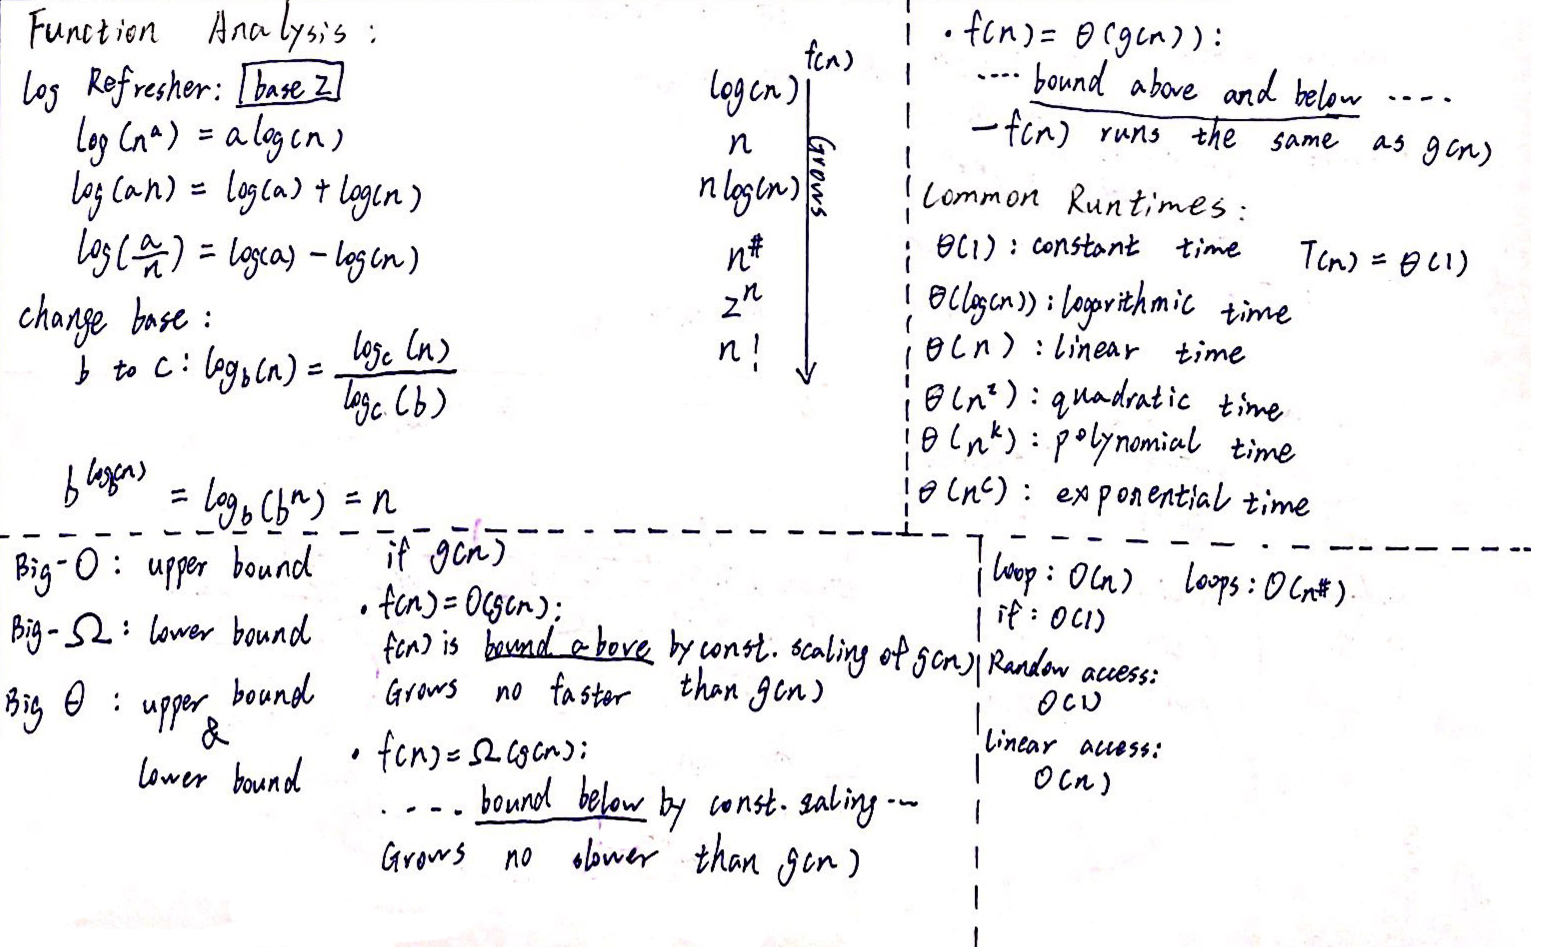 Function Analysis:
log Refresher: base 2
log(n^a) = a log(n)
log(an) = log(a) + log(n)
log(a/n) = log(a) - log(n)
change base:
b to c: log_b(n) = log_c(n) / log_c(b)
b^log_b(n) = log_b(b^n) = n
f(n)
Grows
log(n)
n
n log(n)
n^#
2^n
n!
• f(n) = θ(g(n)):
.... bound above and below ....
- f(n) runs the same as g(n)
Common Runtimes:
θ(1): constant time T(n) = θ(1)
θ(log(n)): logarithmic time
θ(n): linear time
θ(n²): quadratic time
θ(n^k): polynomial time
θ(n^c): exponential time
Big-O: upper bound
Big-Ω: lower bound
Big θ: upper bound
&
lower bound
if g(n)
• f(n) = O(g(n):
f(n) is bound above by const. scaling of g(n)
Grows no faster than g(n)
• f(n) = Ω(g(n):
.... bound below by const. saling ...
Grows no slower than g(n)
loop: O(n) loops: O(n^#)
if: O(1)
Random access:
O(1)
Linear access:
O(n)